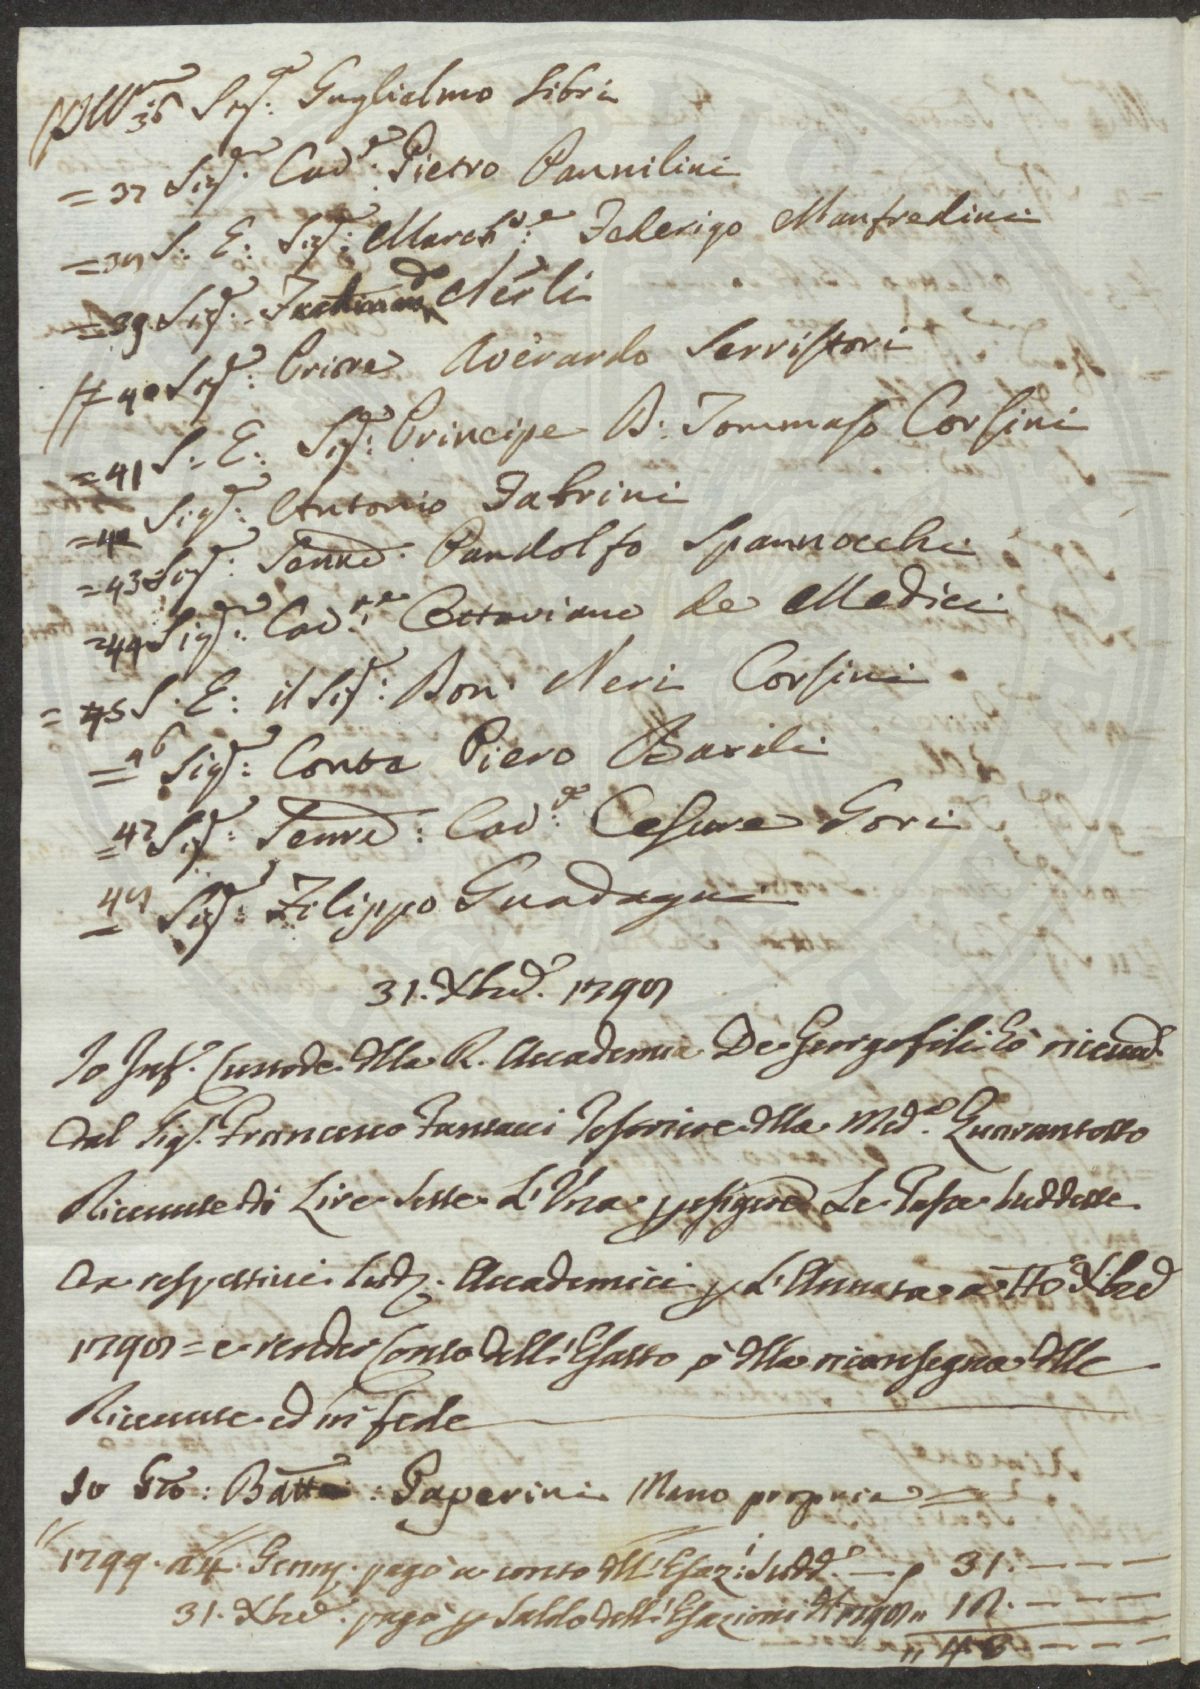 Ill.mo 36 Sig.re Guglielmo Libri
= 37 Sig.re Cav.re Pietro Pannilini
= 38 S. E: Sig.re March.se Federigo Manfredini
= 39 Sig.re Ferdinando Nerli
40 Sig.re Priore Averardo Serristori
= 41 S. E. Sig.re Principe D. Tommaso Corsini
= 42 Sig.re Antonio Fabrini
= 43 Sig.re Senre. Pandolfo Spannocchi
= 44 Sig.re Cav.re Ottaviano de Medici
= 45 S. E: il Sig.re Don Neri Corsini
= 46 Sig.re Conte Piero Bardi
= 47 Sig.re Senre: Cav.re Cesare Gori
48 Sig.re Filippo Guadagni
31. Xbre. 1798
Io Inf.o Custode della R. Accademia De Georgofili ho ricevute
dal Sig.r Francesco Tartacci Tesoriere della Med.a Quarantotto
Ricevute di Lire Sette L'Una p esigere Le Tasse suddette
Da respettivi Sudd. Accademici p L'Annata a tto Xbre
1798 = e render Conto dell'Esatto o della riconsegna delle
Ricevute ed in fede
Io Gio: Batta: Paperini Mano propria
1799. a 4. Genn. pagò a conto dell'Esaz: Sudd.e — p 31. — — —
31. Xbre. pagò p Saldo dell'Esazioni del 1798 „ 18. — — —
„ 48 — — —